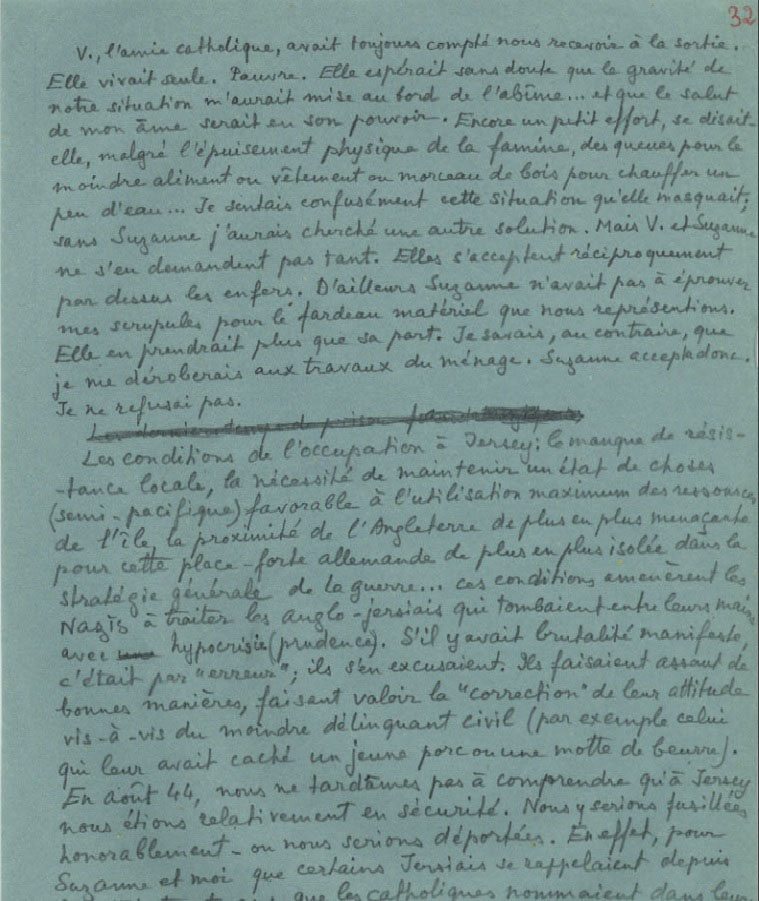 32
V., l'amie catholique, avait toujours compté nous recevoir à la sortie.
Elle vivait seule. Pauvre. Elle espérait sans doute que la gravité de
notre situation m'aurait mise au bord de l'abîme... et que le salut
de mon âme serait en son pouvoir. Encore un petit effort, se disait-
elle, malgré l'épuisement physique de la famine, des queues pour le
moindre aliment ou vêtement ou morceau de bois pour chauffer un
peu d'eau... Je sentais confusément cette situation qu'elle masquait;
sans Suzanne j'aurais cherché une autre solution. Mais V. et Suzanne
ne s'en demandent pas tant. Elles s'acceptent réciproquement
par dessus les enfers. D'ailleurs Suzanne n'avait pas à éprouver
mes scrupules pour le fardeau matériel que nous représentions.
Elle en prendrait plus que sa part. Je savais, au contraire, que
je me déroberais aux travaux du ménage. Suzanne accepta donc.
Je ne refusai pas.
Les conditions de l'occupation à Jersey: le manque de résis-
-tance locale, la nécessité de maintenir un état de choses
(semi-pacifique) favorable à l'utilisation maximum des ressources
de l'île, la proximité de l'Angleterre de plus en plus menaçante
pour cette place-forte allemande de plus en plus isolée dans la
stratégie générale de la guerre... ces conditions amenèrent les
Nazis à traiter les anglo-jersiais qui tombaient entre leurs mains
avec hypocrisie (prudence). S'il y avait brutalité manifeste,
c'était par "erreur"; ils s'en excusaient. Ils faisaient assaut de
bonnes manières, faisant valoir la "correction" de leur attitude
vis-à-vis du moindre délinquant civil (par exemple celui
qui leur avait caché un jeune porc ou une motte de beurre).
En août 44, nous ne tardâmes pas à comprendre qu'à Jersey
nous étions relativement en sécurité. Nous y serions fusillées
honorablement - ou nous serions déportées. En effet, pour
Suzanne et moi que certains Jersiais se rappelaient depuis
que les catholiques nommaient dans leur